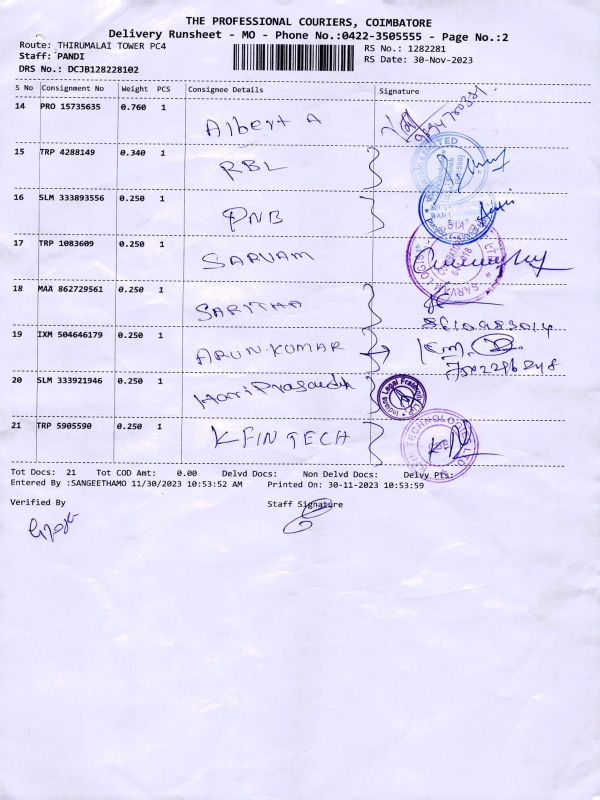 THE PROFESSIONAL COURIERS, COIMBATORE
Delivery Runsheet - MO - Phone No.:0422-3505555 - Page No.:2
Route: THIRUMALAI TOWER PC4 RS No.: 1282281
Staff: PANDI RS Date: 30-Nov-2023
DRS No.: DCJB128228102
S No Consignment No Weight PCS Consignee Details Signature
14 PRO 15735635 0.760 1 Albert A
15 TRP 4288149 0.340 1 RBL
16 SLM 333893556 0.250 1 PNB
17 TRP 1083609 0.250 1 SARVAM
18 MAA 862729561 0.250 1 SARITHA
19 IXM 504646179 0.250 1 ARUN.KUMAR
20 SLM 333921946 0.250 1 Hari Prasaudh
21 TRP 5905590 0.250 1 KFINTECH
Tot Docs: 21 Tot COD Amt: 0.00 Delvd Docs: Non Delvd Docs: Delvy Pts:
Entered By :SANGEETHAMO 11/30/2023 10:53:52 AM Printed On: 30-11-2023 10:53:59
Verified By Staff Signature